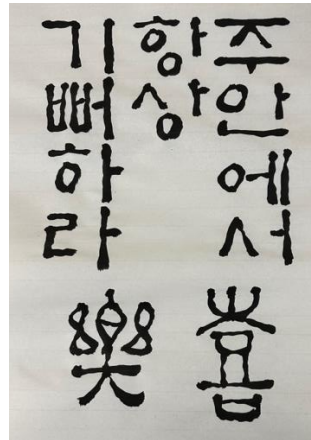 주안에서
항상
기뻐하라
喜樂